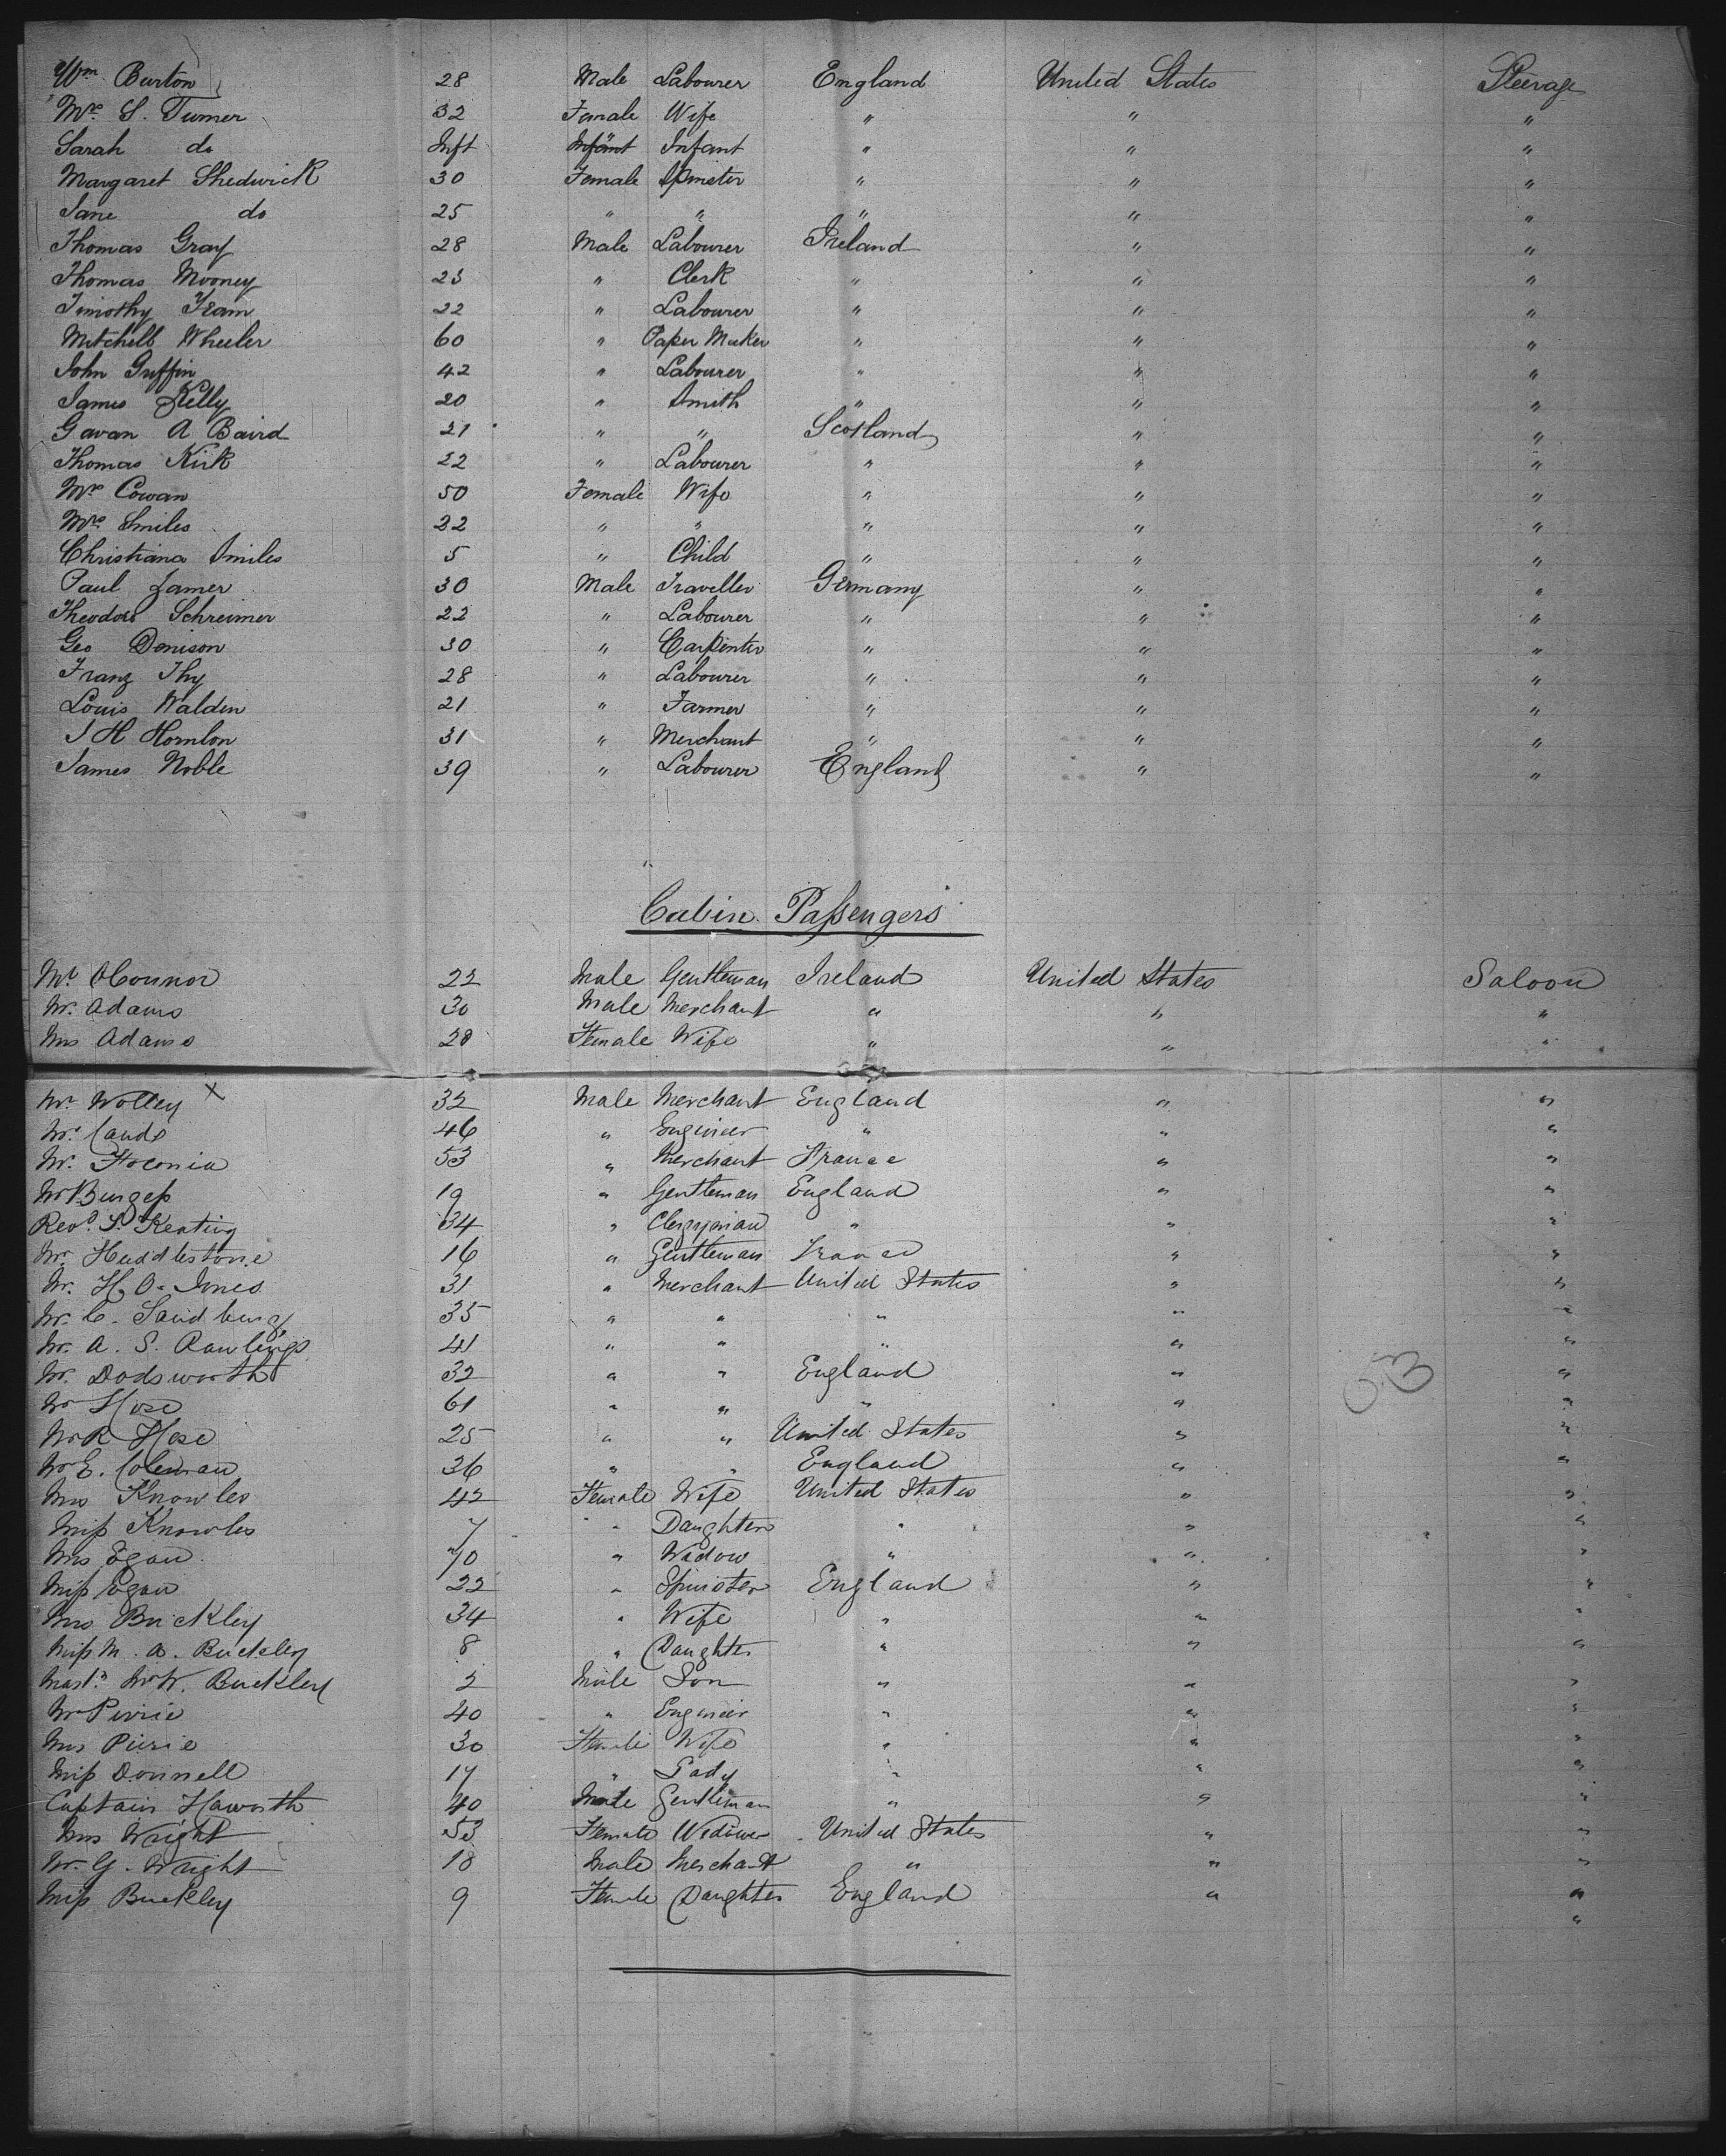 Wm Burton 28 Male Labourer England United States Steerage
Mrs S. Turner 32 Female Wife " " "
Sarah do Inft Infant Infant " " "
Margaret Shedwick 30 Female Spinster " " "
Jane do 25 " " " " "
Thomas Gray 28 Male Labourer Ireland " "
Thomas Mooney 23 " Clerk " " "
Timothy 22 " Labourer " " "
Mitchell Wheeler 60 " Paper Maker " " "
John Griffin 42 " Labourer " " "
James Kelly 20 " Smith " " "
Gavan A Baird 21 " " Scotland " "
Thomas Kirk 22 " Labourer " " "
Mrs Cowan 50 Female Wife " " "
Mrs Smiles 32 " " " " "
Christiana Smiles 5 " Child " " "
Paul Zamer 30 Male Traveller Germany " "
Theodore Schreimer 22 " Labourer " " "
Geo Denison 30 " Carpenter " " "
Franz Thy 28 " Labourer " " "
Louis Walden 21 " Farmer " " "
J H Hornlon 31 " Merchant " " "
James Noble 39 " Labourer England " "
Cabin Passengers
Mr OConnor 22 Male Gentleman Ireland United States Saloon
Mr. Adams 30 Male Merchant " " "
Mrs Adams 28 Female Wife " " "
Mr Wolley x 32 Male Merchant England " "
Mr. 46 " Engineer " " "
Mr. 53 " Merchant France " "
Mr Burgess 19 " Gentleman England " "
Revd. S. Keating 34 " Clergyman " " "
Mr. Huddlestone 16 " Gentleman France " "
Mr. H. O. Jones 31 " Merchant United States " "
Mr. C. Sandburg 35 " " " " "
Mr. A. S. Rawlings 41 " " " " "
Mr. Dodsworth 32 " " England " "
Mr Hose 61 " " " " "
Mr R Hose 25 " " United States " "
Mr E. Coleman 36 " " England " "
Mrs Knowles 42 Female Wife United States " "
Miss Knowles 7 " Daughter " " "
Mrs Egan 70 " Widow " " "
Miss Egan 22 " Spinster England " "
Mrs Buckley 34 " Wife " " "
Miss M. A. Buckley 8 " Daughter " " "
Mastr. Mr W. Buckley 2 Male Son " " "
Mr Pirrie 40 " Engineer " " "
Mrs Pirrie 30 Female Wife " " "
Miss Donnell 17 " Lady " " "
Captain Haworth 40 Male Gentleman " " "
Mrs Wright 53 Female Widow United States " "
Mr. G. Wright 18 Male Merchant " " "
Miss Buckley 9 Female Daughter England " "
"
53